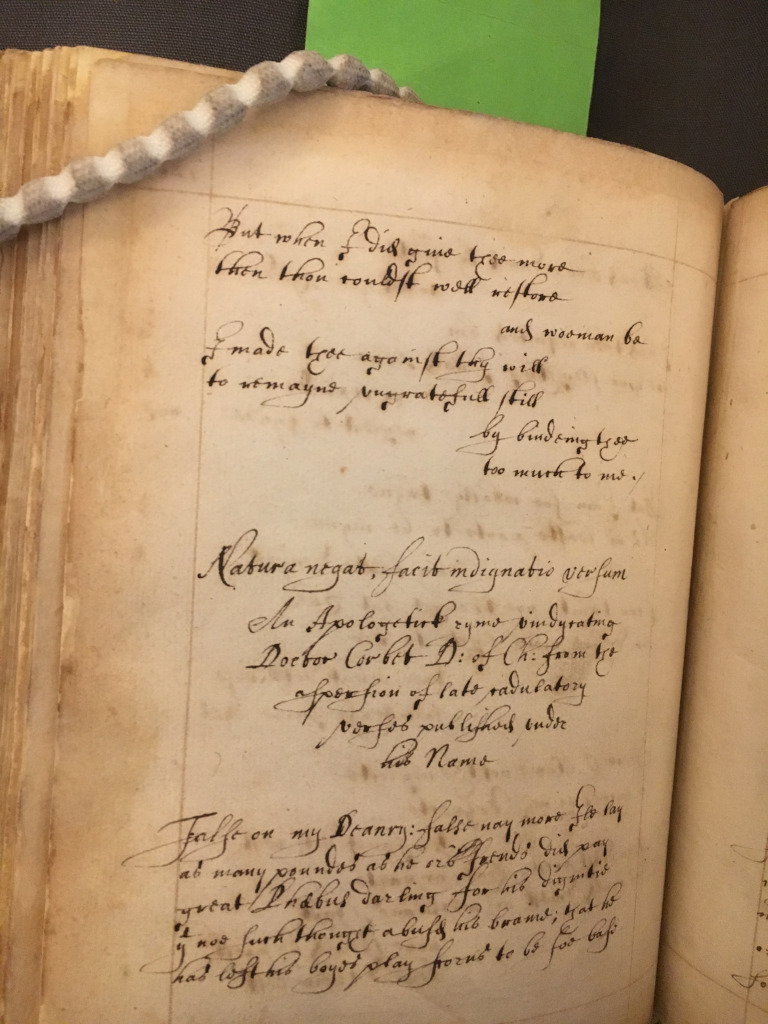 But when I did giue thee more
then thou couldst well restore
and woeman be
I made thee against thy will
to remayne vngratefull still
by bindeing thee
too much to me.
Natura negat, facit indignatio versum
An Apologetick ryme vindycating
Doctor Corbet D: of Ch: from the
aspersion of late adulatory
verses published vnder
his Name
False on my Deanry: false nay more Ile lay
as many poundes as he or's frends did pay
great Phæbus darling for his dignitie
yt noe such thought abusd his braine; that he
has left his boyes play to be soe base